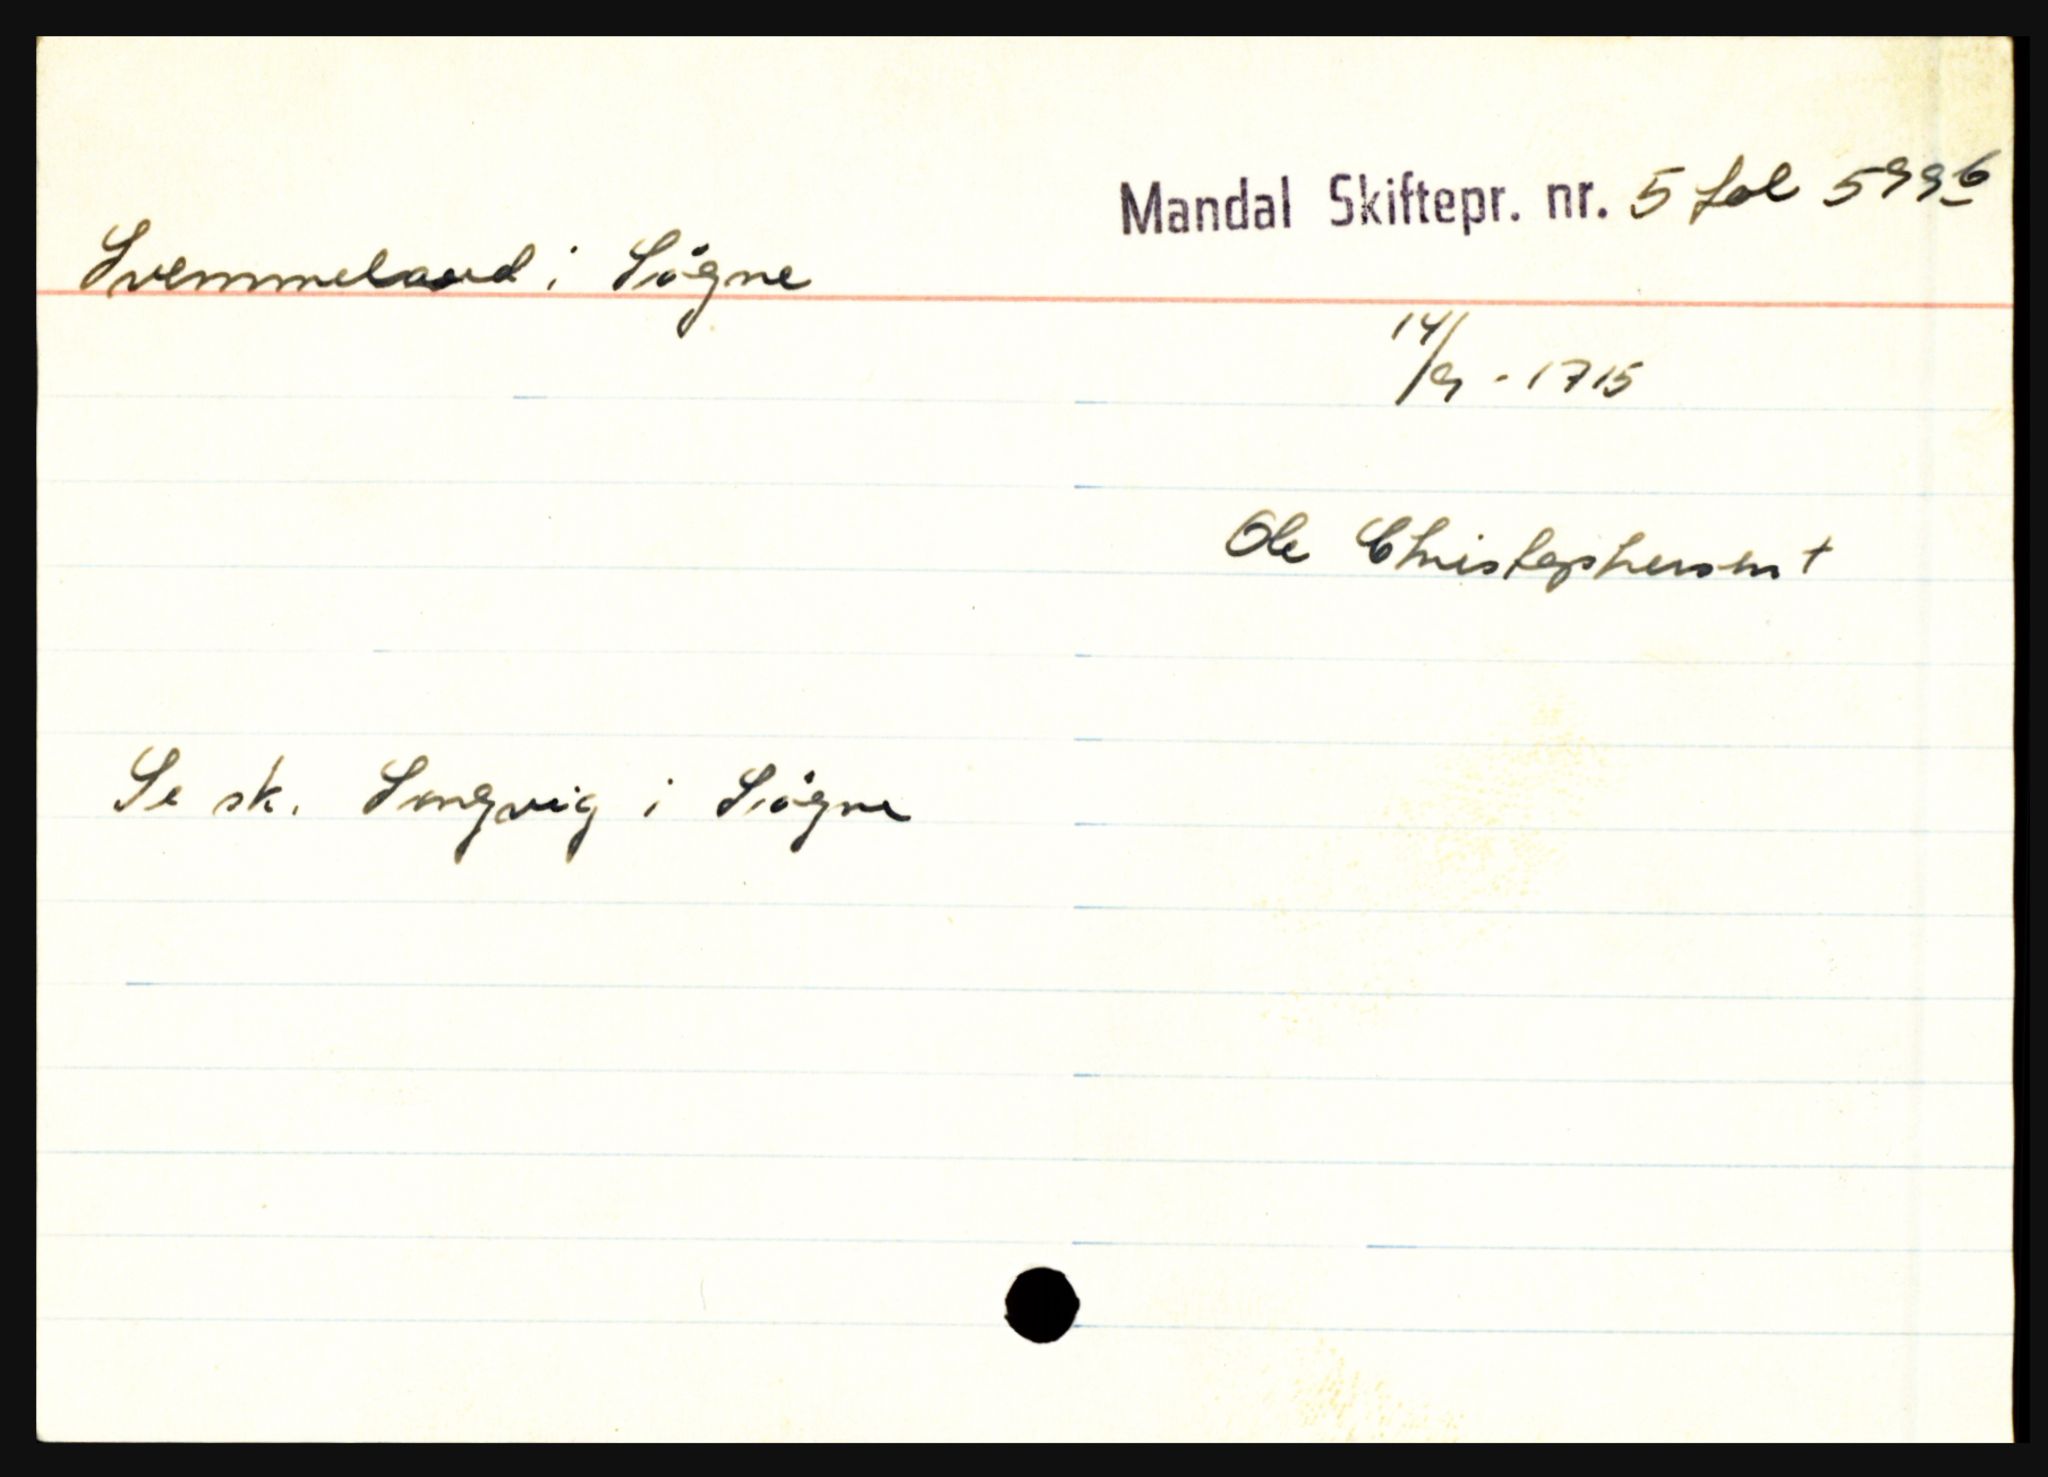 Mandal Skiftepr. nr. 5 fol 599b
Svemmeland i Søgne
14/9 - 1715
Ole Christophersen +
Se sk. Songvig i Søgne